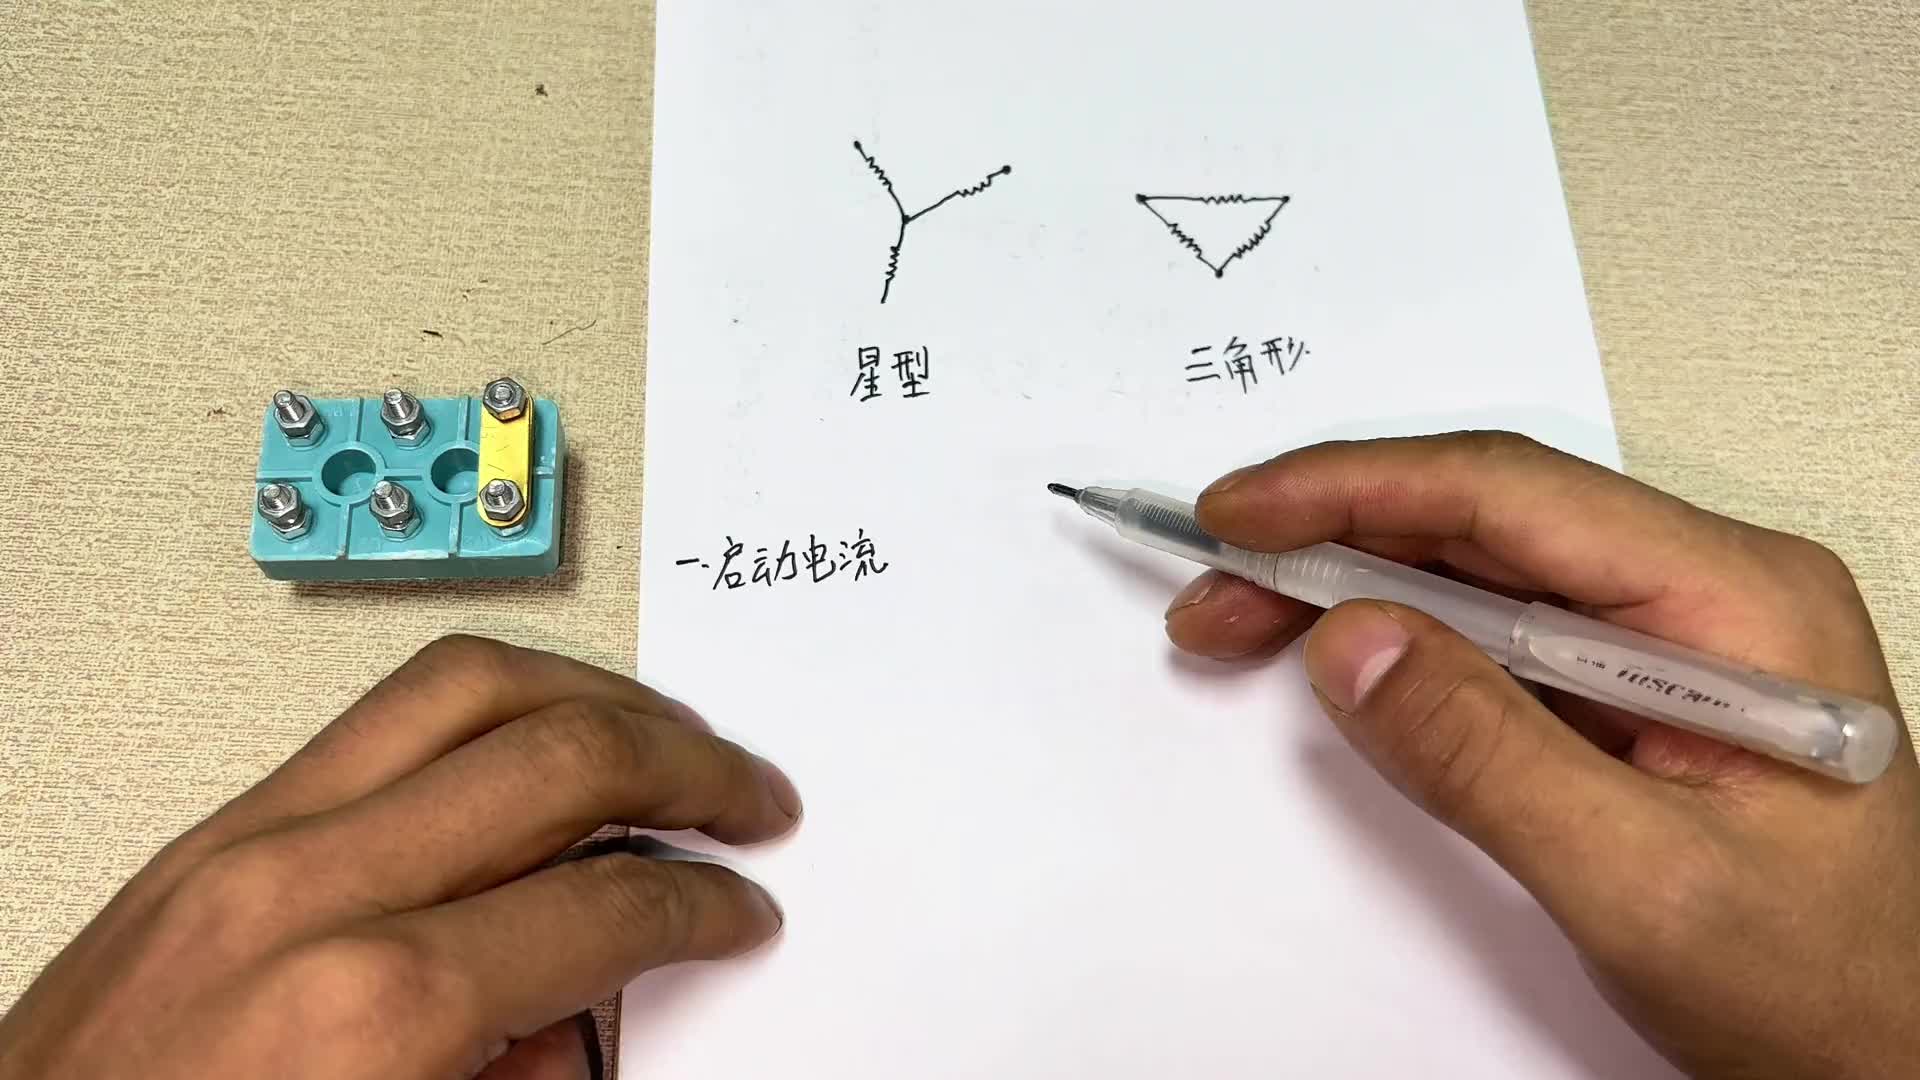 星型
三角形
一.启动电流